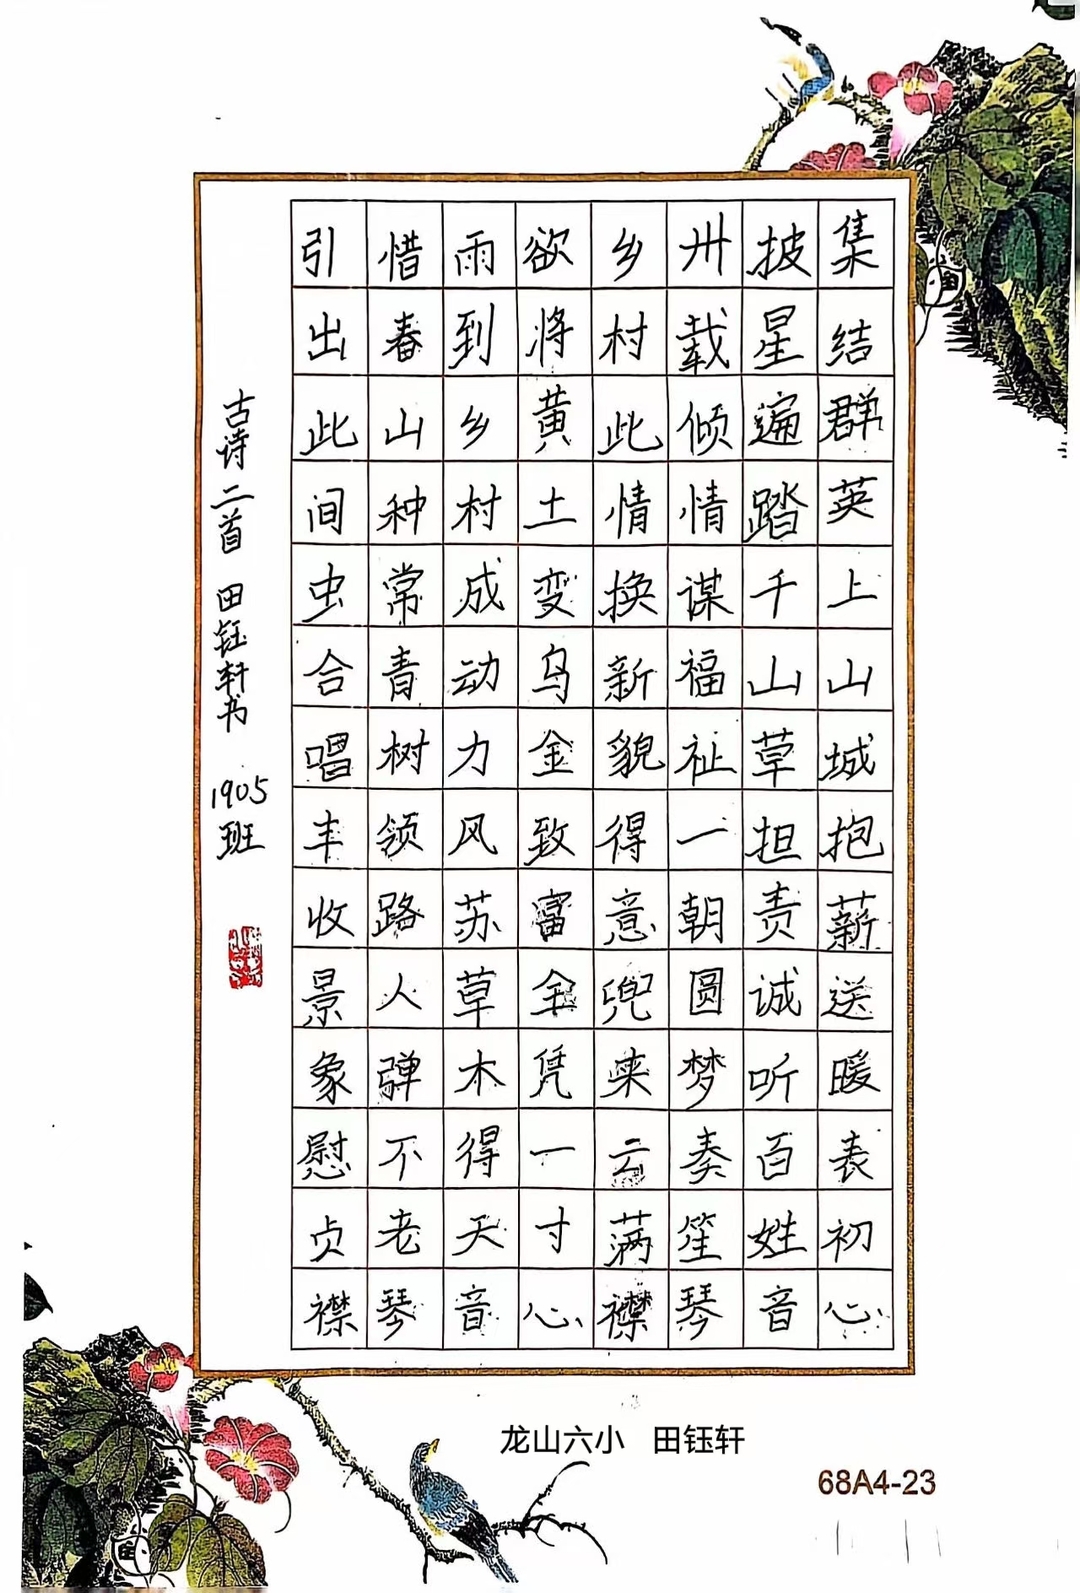 集结群英上山城抱薪送暖表初心
披星遍踏千山草担责诚听百姓音
卅载倾情谋福祉一朝圆梦奏笙琴
乡村此情换新貌得意兜来云满襟
欲将黄土变乌金致富全凭一寸心
雨到乡村成动力风苏草木得天音
惜春山种常青树领路人弹不老琴
引出此间虫合唱丰收景象慰贞襟
古诗二首 田钰轩书 1905班
龙山六小 田钰轩
68A4-23